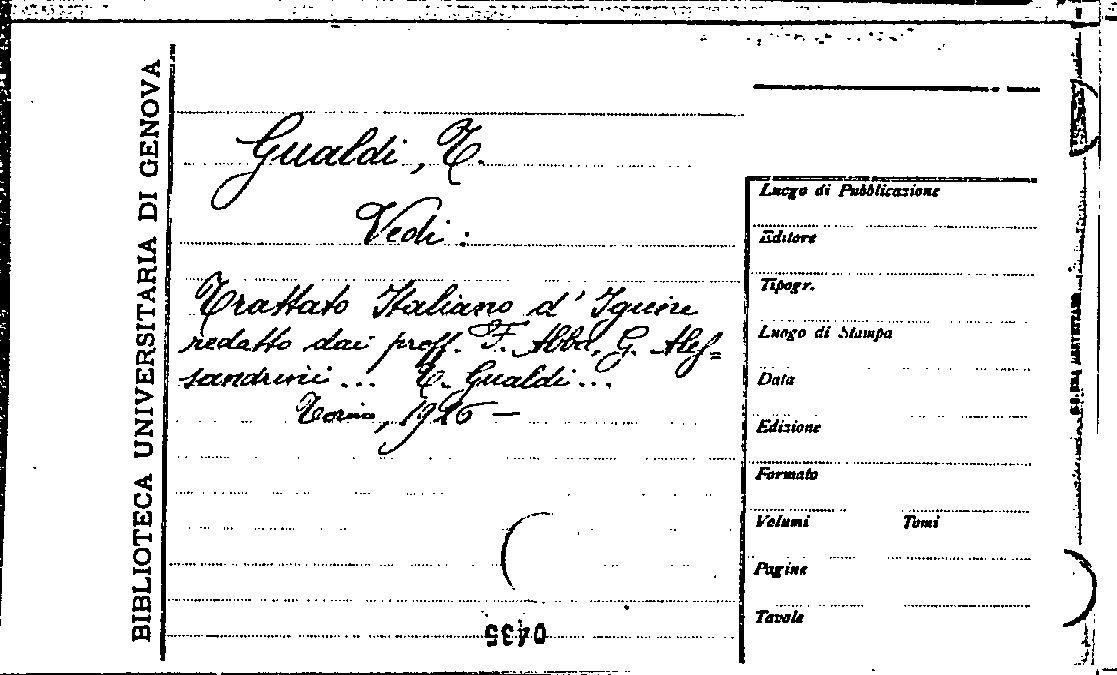 BIBLIOTECA UNIVERSITARIA DI GENOVA
Gualdi, T.
Vedi:
Trattato Italiano d' Igiene
redatto dai proff. F. Abba, G. Ales=
sandrini... T. Gualdi...
Torino, 1926 —
Luogo di Pubblicazione
Editore
Tipogr.
Luogo di Stampa
Data
Edizione
Formato
Volumi Tomi
Pagine
Tavole
0435